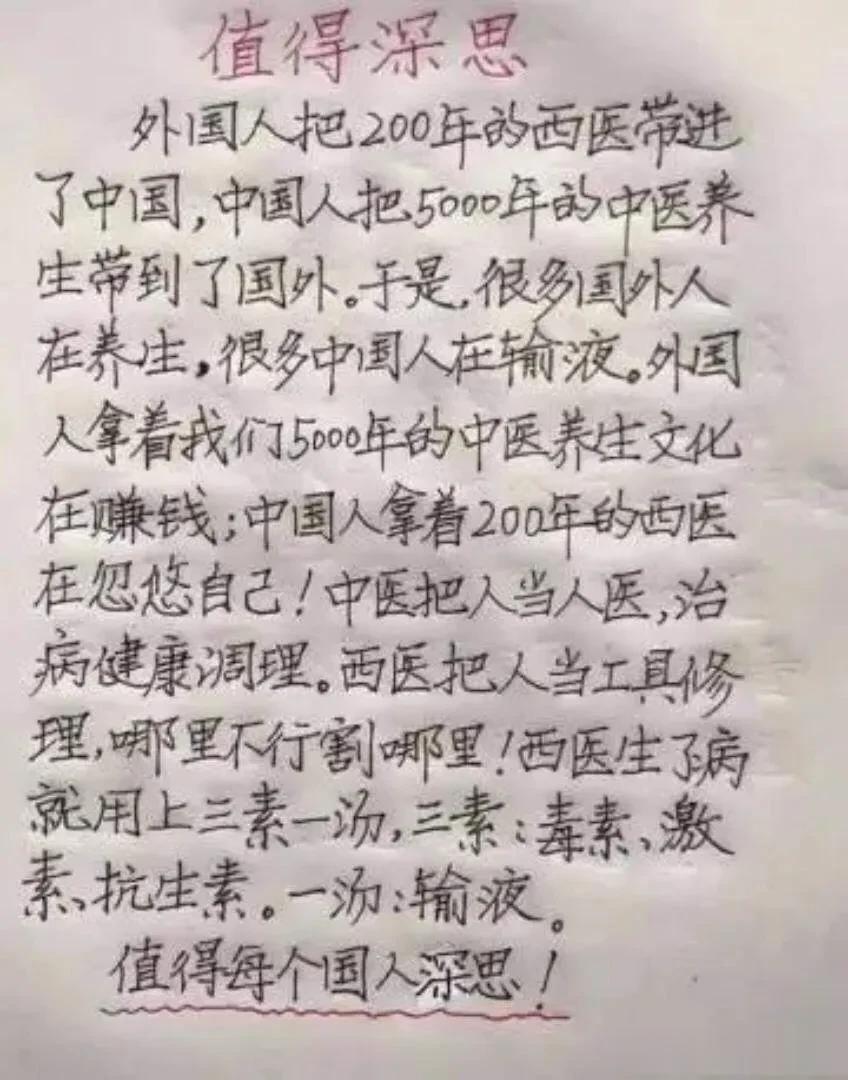 值得深思
外国人把200年的西医带进
了中国,中国人把5000年的中医养
生带到了国外。于是,很多国外人
在养生,很多中国人在输液。外国
人拿着我们5000年的中医养生文化
在赚钱;中国人拿着200年的西医
在忽悠自己!中医把人当人医,治
病健康调理。西医把人当工具修
理,哪里不行割哪里!西医生了病
就用上三素一汤,三素:毒素、激
素、抗生素。一汤:输液。
值得每个国人深思!